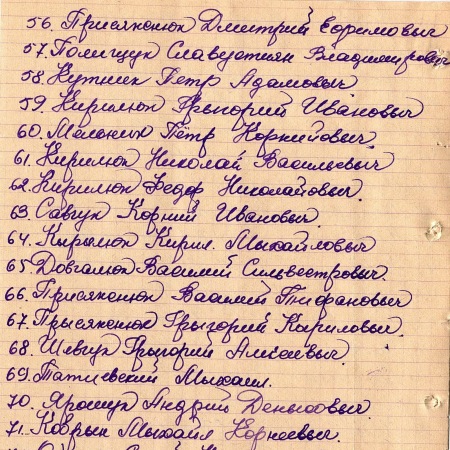 56. Присяжнюк Дмитрий Ефримовыч
57. Полищук Славустиян Владимирович
58. Кутишек Петр Адамовыч.
59. Кирилюк Грыгорий Ивановыч
60. Мельник Пётр Корнийовыч.
61. Кирилюк Николай Васильевыч
62. Кирилюк Федор Николайовыч.
63. Савчук Корний Ивановыч.
64. Кырылюк Кирил. Мыхайловыч
65. Довгалюк Василий Сильвестровыч.
66. Присяжнюк Василий Тифановыч
67. Прысяжнюк Грыгорий Кариловыч.
68. Шевчук Грыгорий Алксеевыч.
69. Татиевский Мыхаил.
70. Ярощук Андрий Денысовыч.
71. Кобрын Мыхайл Корнеевыч.